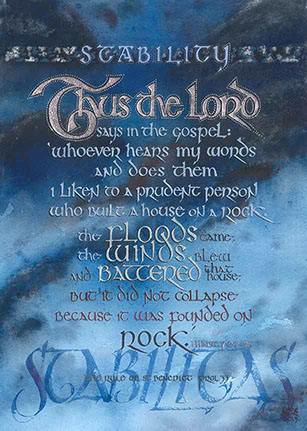 STABILITY
Thus the Lord
says in the gospel:
'whoever hears my words
and does them
I liken to a prudent person
who built a house on a rock.
the FLOODS came,
the WINDS blew
and BATTERED that house;
but it did not collapse
because it was founded on
rock.'
STABILITAS
the rule of st benedict